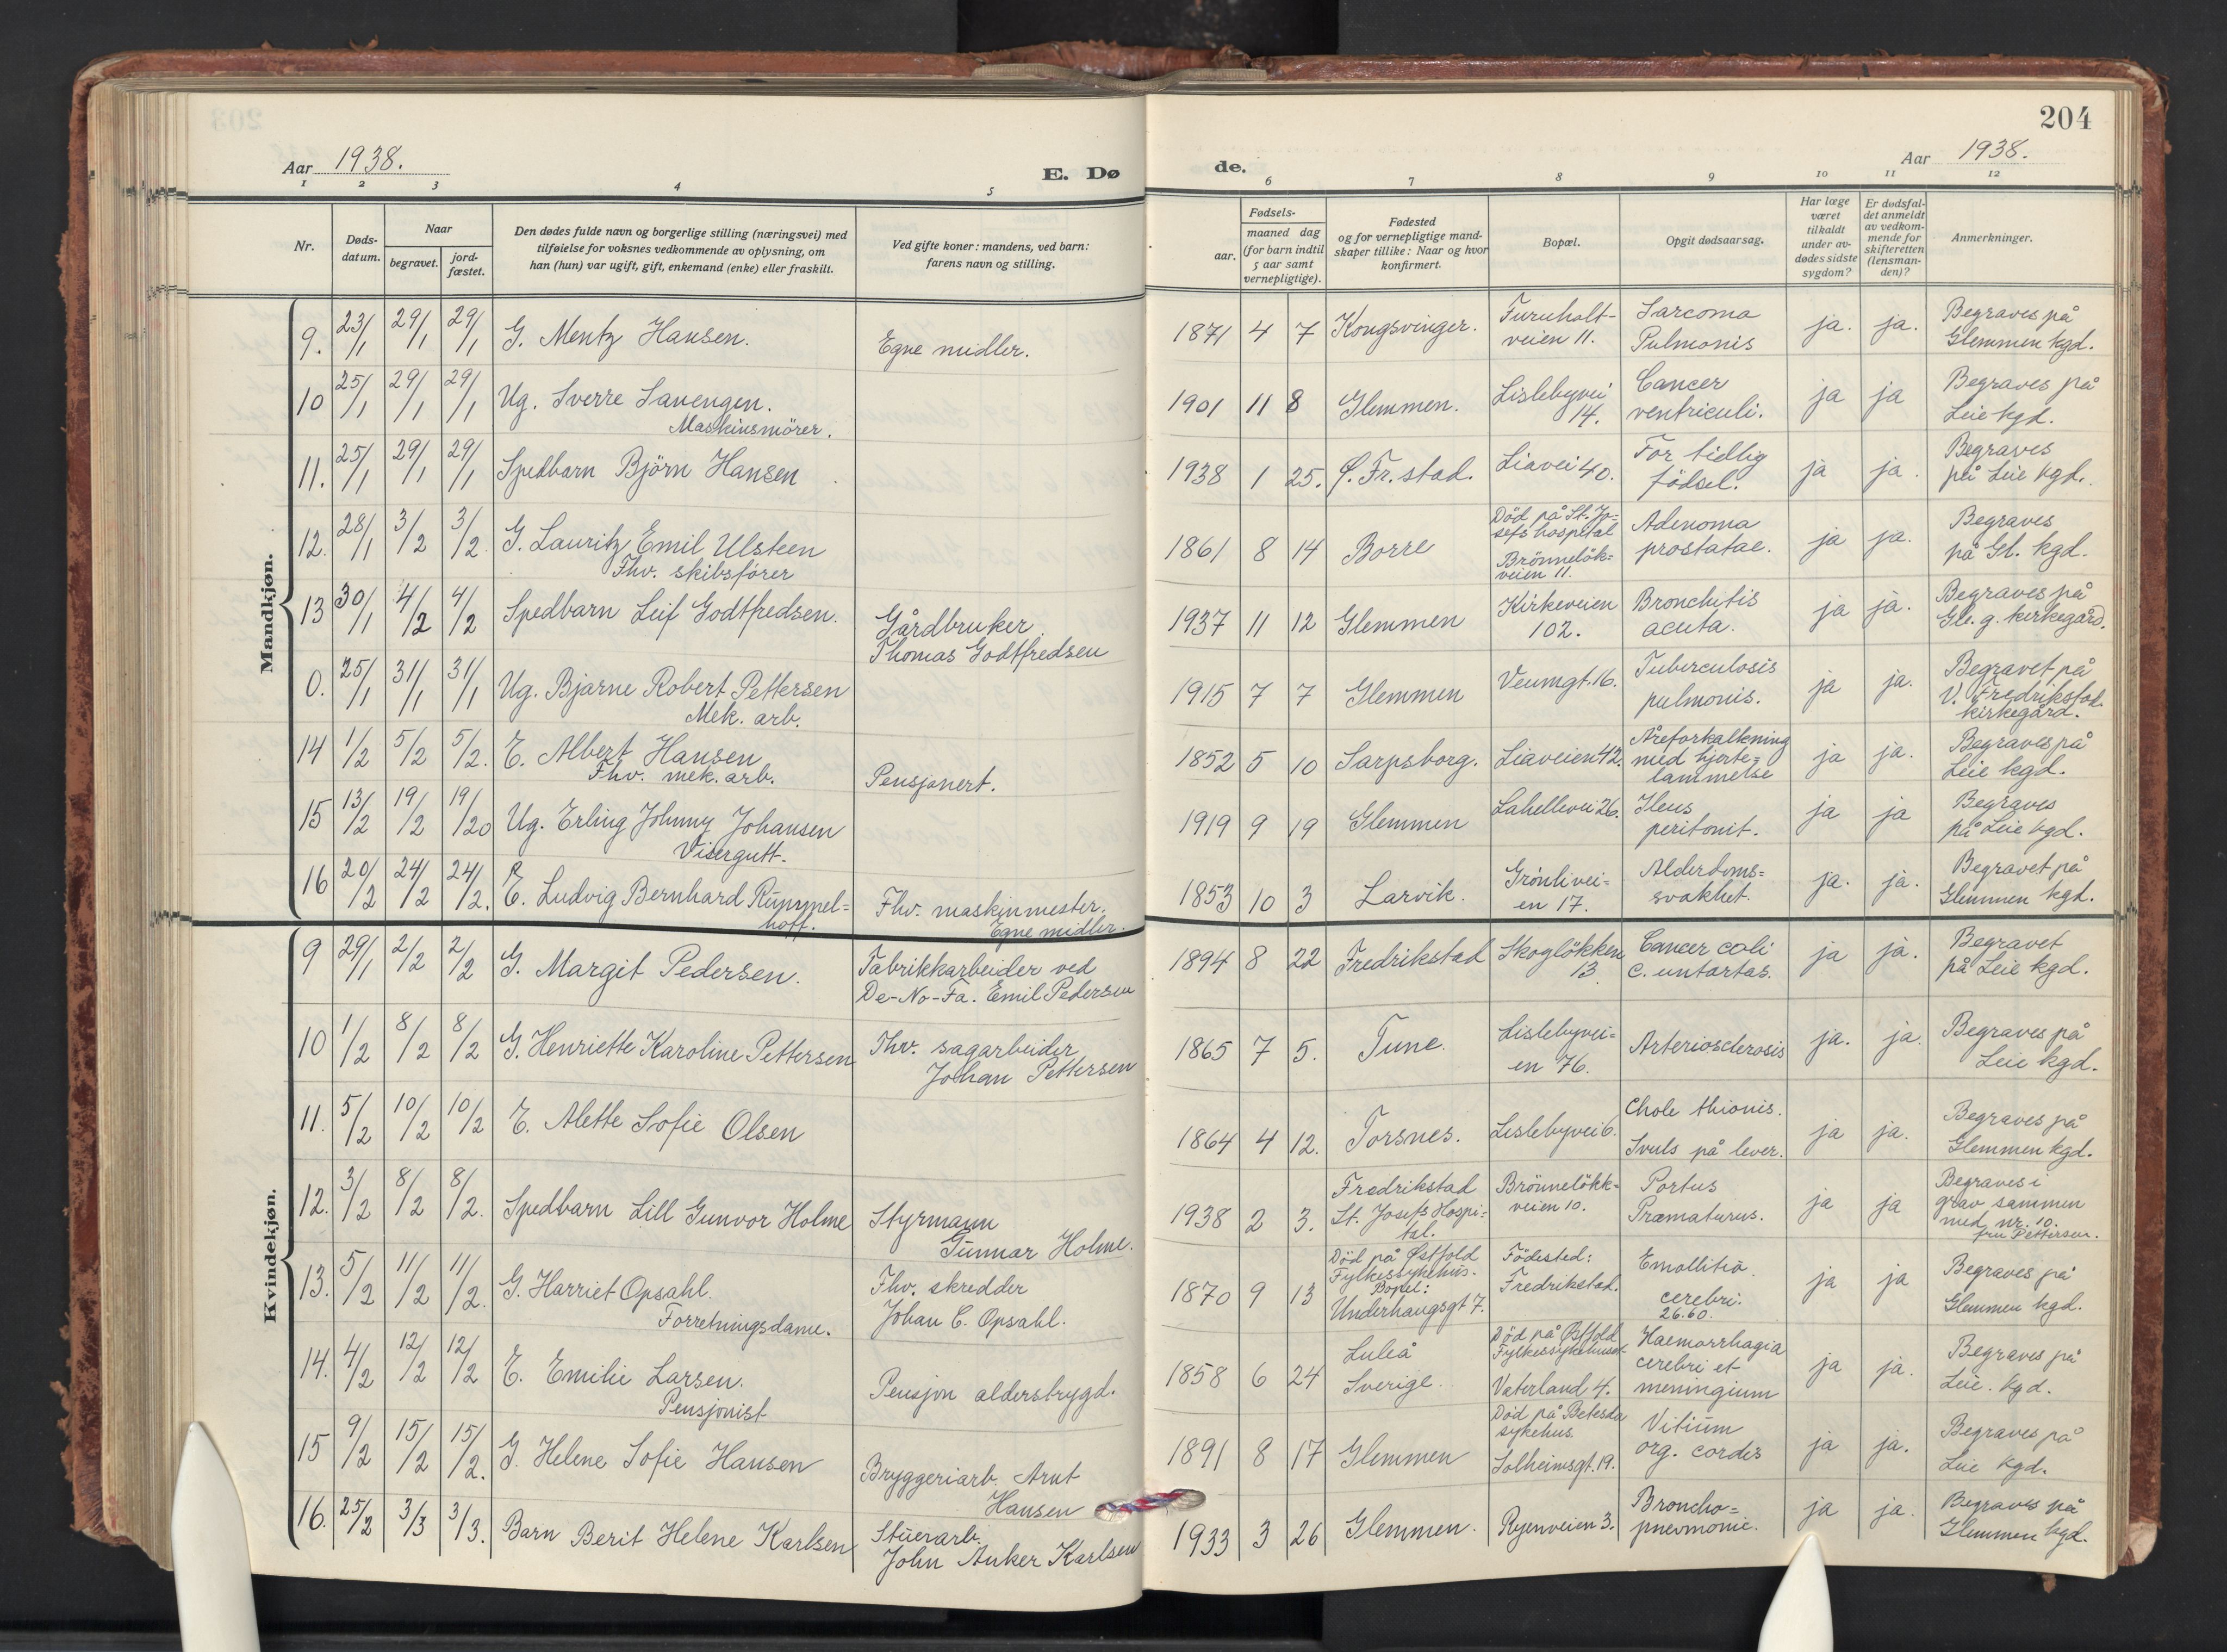 204
Aar 1938.
E. Dø
de.
Aar 1938.
1 2 3 4 5 6 7 8 9 10 11 12
Nr.
Døds-
datum.
Naar
begravet.
jord-
fæstet.
Den dødes fulde navn og borgerlige stilling (næringsvei) med
tilføielse for voksnes vedkommende av oplysning, om
han (hun) var ugift, gift, enkemand (enke) eller fraskilt.
Ved gifte koner: mandens, ved barn:
farens navn og stilling.
Fødsels-
aar.
maaned dag
(for barn indtil
5 aar samt
vernepligtige).
Fødested
og for vernepligtige mand-
skaper tillike: Naar og hvor
konfirmert.
Bopæl.
Opgit dødsaarsag.
Har læge
været
tilkaldt
under av-
dødes sidste
sygdom?
Er dødsfal-
det anmeldt
av vedkom-
mende for
skifteretten
(lensman-
den)?
Anmerkninger.
Mandkjøn.
9. 23/1 29/1 29/1 G. Mentz Hansen.
Egne midler.
1871 4 7 Kongsvinger.
Furuholt-
veien 11.
Sarcoma
Pulmonis
ja. ja.
Begraves på
Glemmen kgd.
10 25/1 29/1 29/1 Ug. Sverre Savengen.
Maskinsmörer.
1901 11 8 Glemmen.
Lislebyvei
14.
Cancer
ventriculi.
ja ja
Begraves på
Leie kgd.
11. 25/1 29/1 29/1 Spedbarn Björn Hansen
1938 1 25. Ø. Fr.stad.
Liavei 40.
For tidlig
födsel.
ja ja.
Begraves
på Leie kgd.
12. 28/1 3/2 3/2. G. Lauritz Emil Ulsteen
Fhv. skibsfører
1861 8 14 Borre
Död på St. Jo-
sefs hospital
Brönnelök-
veien 11.
Adenoma
prostatae.
ja ja.
Begraves
på Gl. kgd.
13 30/1 4/2 4/2 Spedbarn Leif Godtfredsen.
Gårdbruker
Thomas Godtfredsen
1937 11 12 Glemmen
Kirkeveien
102.
Bronchitis
acuta.
ja ja.
Begraves på
Gle. g. kirkegård.
0. 25/1 31/1 31/1 Ug. Bjarne Robert Pettersen
Mek. arb.
1915 7 7 Glemmen
Veumgt. 16.
Tuberculosis
pulmonis.
ja ja.
Begravet på
V. Fredrikstad
kirkegård.
14 1/2 5/2 5/2. E. Albert Hansen
Fhv. mek. arb.
Pensjonert.
1852 5 10 Sarpsborg.
Liaveien 42.
Åreforkalkning
med hjerte=
lammelse
ja ja.
Begraves på
Leie kgd.
15 13/2 19/2 19/20 Ug. Erling Johnny Johansen
Visergutt.
1919 9 19 Glemmen
Lahellevei 26.
Ileus
peritonit.
ja ja
Begraves
på Leie kgd.
16 20/2 24/2 24/2. E. Ludvig Bernhard Rummel=
hoff.
Fhv. maskinmester.
Egne midler.
1853 10 3 Larvik.
Grönlivei=
en 17.
Alderdoms=
svakhet.
ja. ja.
Begravet på
Glemmen kgd.
Kvindekjøn.
9 29/1 2/2 2/2 G. Margit Pedersen.
Fabrikkarbeider ved
De-No-Fa. Emil Pedersen
1894 8 22 Fredrikstad
Skoglökken
13.
Cancer coli
ja ja.
Begravet
på Leie kgd.
10 1/2 8/2 8/2 G. Henriette Karoline Pettersen
Fhv. sagarbeider
Johan Pettersen
1865 7 5. Tune.
Lislebyvei=
en 76.
Arteriosclerosis
ja. ja.
Begraves på
Leie kgd.
11. 5/2 10/2 10/2 E. Alette Sofie Olsen
1864 4 12. Torsnes.
Lislebyvei 6.
Chole thionis.
Svuls på lever.
ja ja.
Begraves på
Glemmen kgd.
12. 3/2 8/2 8/2. Spedbarn Lill Gunvor Holme
Styrmann
Gunnar Holme.
1938 2 3.
Fredrikstad
St. Josefs Hospi=
tal.
Brönnelökk=
veien 10.
Portus
Præmaturus.
ja ja
Begraves i
grav sammen
med nr. 10.
fru Pettersen.
13. 5/2 11/2 11/2. G. Harriet Opsahl.
Forretningsdame.
Fhv. skredder
Johan C. Opsahl.
1870 9 13
Död på Østfold
Fylkessykehus.
Bopel:
Underhaugsgt 7.
Födested:
Fredrikstad.
Emollitio
cerebri.
26.60.
ja ja
Begraves på
Glemmen kgd.
14. 4/2 12/2 12/2 E. Emilie Larsen.
Pensjonist
Pensjon alderstrygd.
1858 6 24
Luleå
Sverige.
Död på Østfold
Fylkessykehuset
Vaterland 4.
Haemorrhagia
cerebri et
meningium
ja ja.
Begraves på
Leie. kgd.
15 9/2 15/2 15/2. G. Helene Sofie Hansen
Bryggeriarb. Arnt
Hansen
1891 8 17 Glemmen
Död på Betesda
sykehus.
Solheimsgt. 19.
Vitium
org. cordis
ja ja.
Begraves på
Leie kgd.
16. 25/2 3/3 3/3. Barn Berit Helene Karlsen
Stuerarb.
John Anker Karlsen
1933 3 26 Glemmen.
Ryenveien 3.
Broncho=
pnevmonie.
ja ja.
Begraves på
Glemmen kgd.